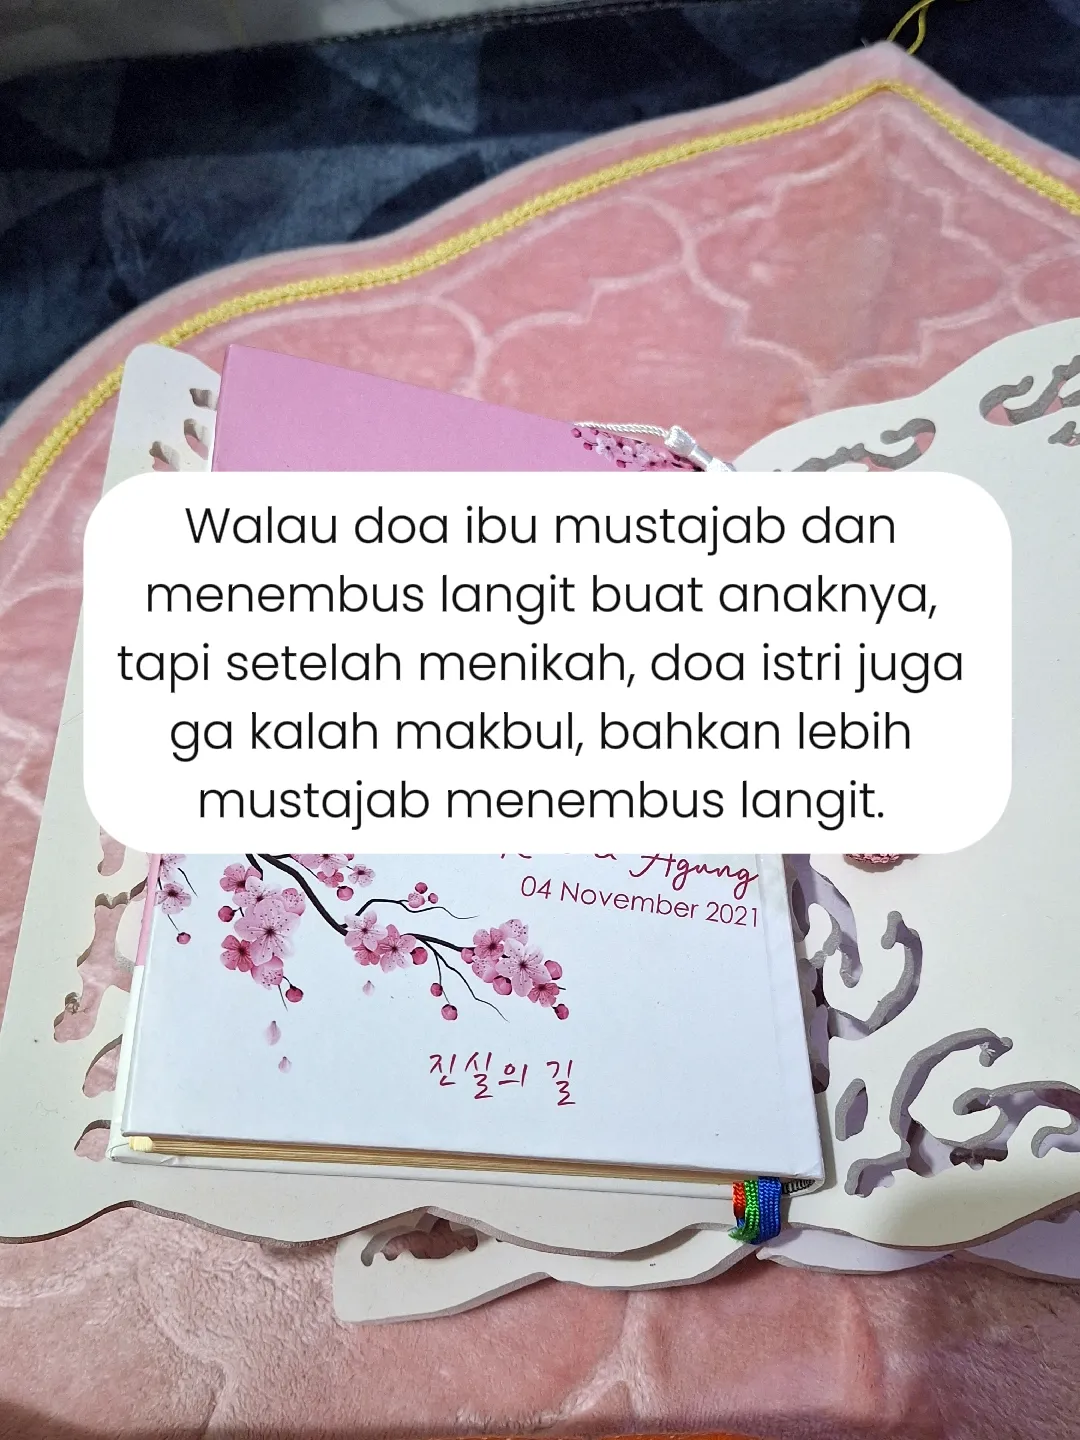 Walau doa ibu mustajab dan
menembus langit buat anaknya,
tapi setelah menikah, doa istri juga
ga kalah makbul, bahkan lebih
mustajab menembus langit.
Agung
04 November 2021
진실의 길